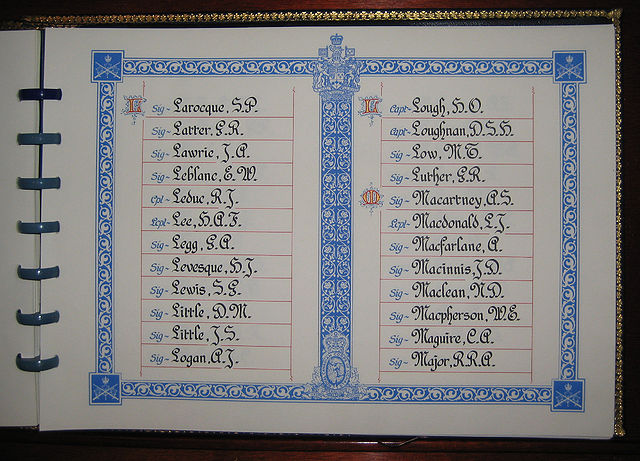 L
Sig~ Larocque, S.P.
Sig~ Larter, G.R.
Sig~ Lawrie, J.A.
Sig~ Leblanc, E.W.
Cpl~ Leduc, R.J.
Lcpl~ Lee, H.A.F.
Sig~ Legg, G.A.
Sig~ Levesque, H.J.
Sig~ Lewis, S.G.
Sig~ Little, D.M.
Sig~ Little, J.S.
Sig~ Logan, A.J.
L
Capt~ Lough, H.O.
Capt~ Loughnan, D.S.H.
Sig~ Low, M.T.
Sig~ Luther, G.R.
M
Sig~ Macartney, A.S.
Lcpl~ Macdonald, L.J.
Sig~ Macfarlane, A.
Sig~ Macinnis, J.D.
Sig~ Maclean, N.D.
Sig~ Macpherson, W.E.
Sig~ Maguire, C.A.
Sig~ Major, R.R.A.